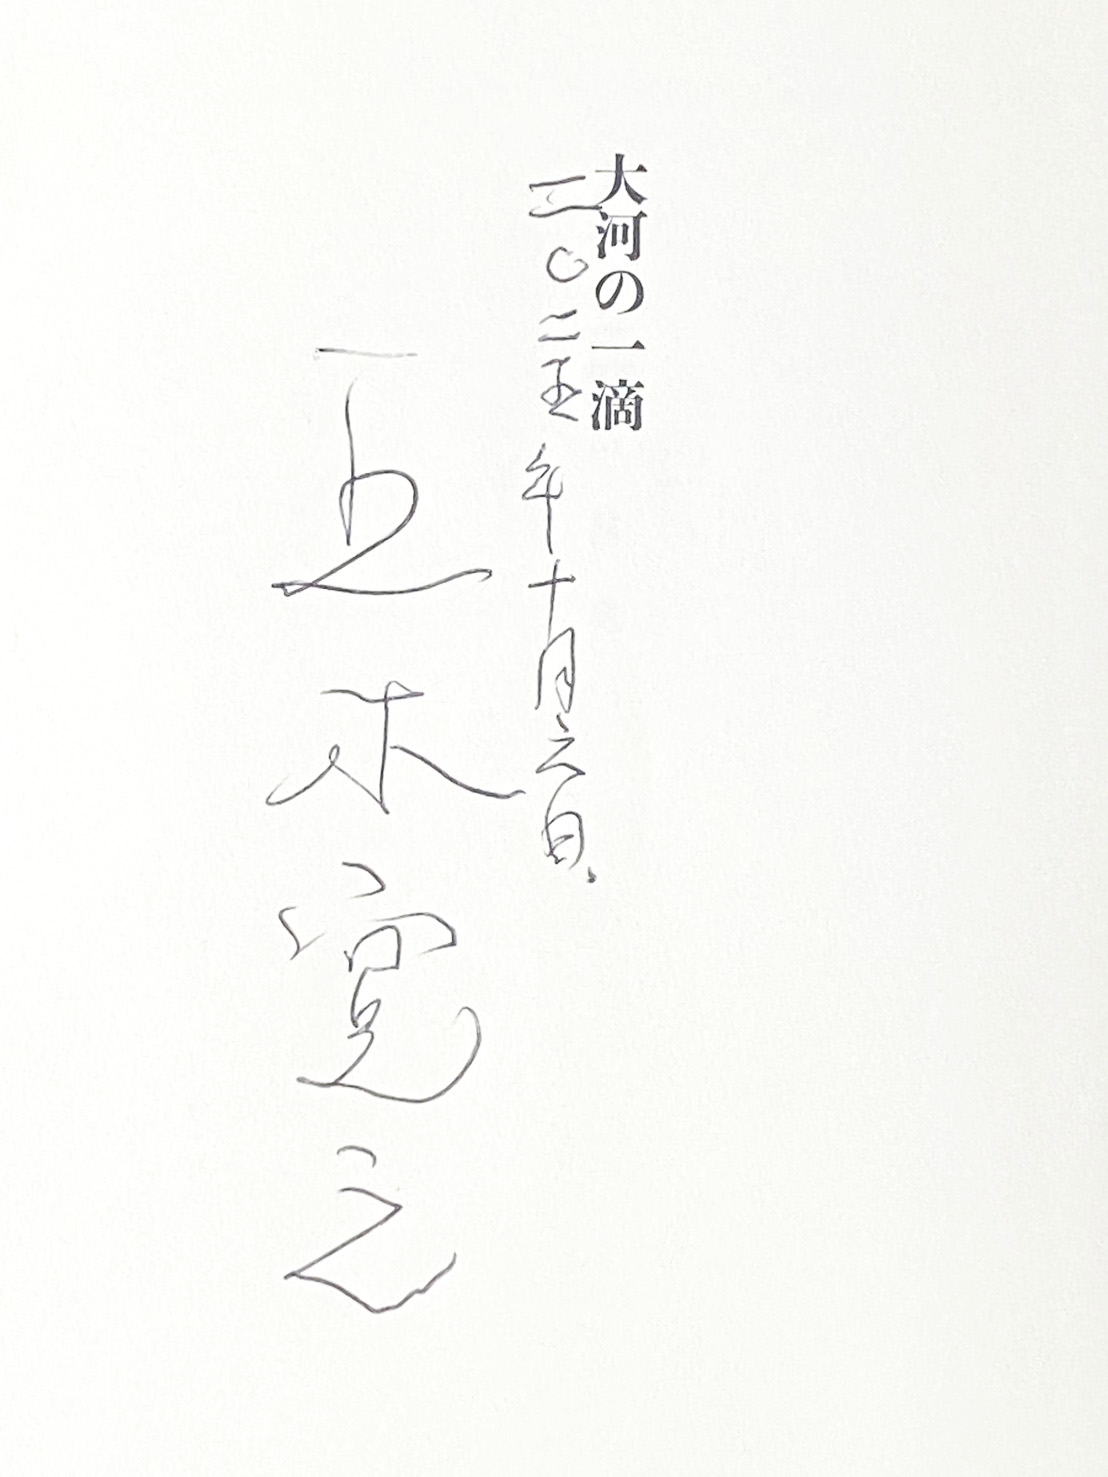 大河の一滴
二〇二五年十月六日、
五木寛之